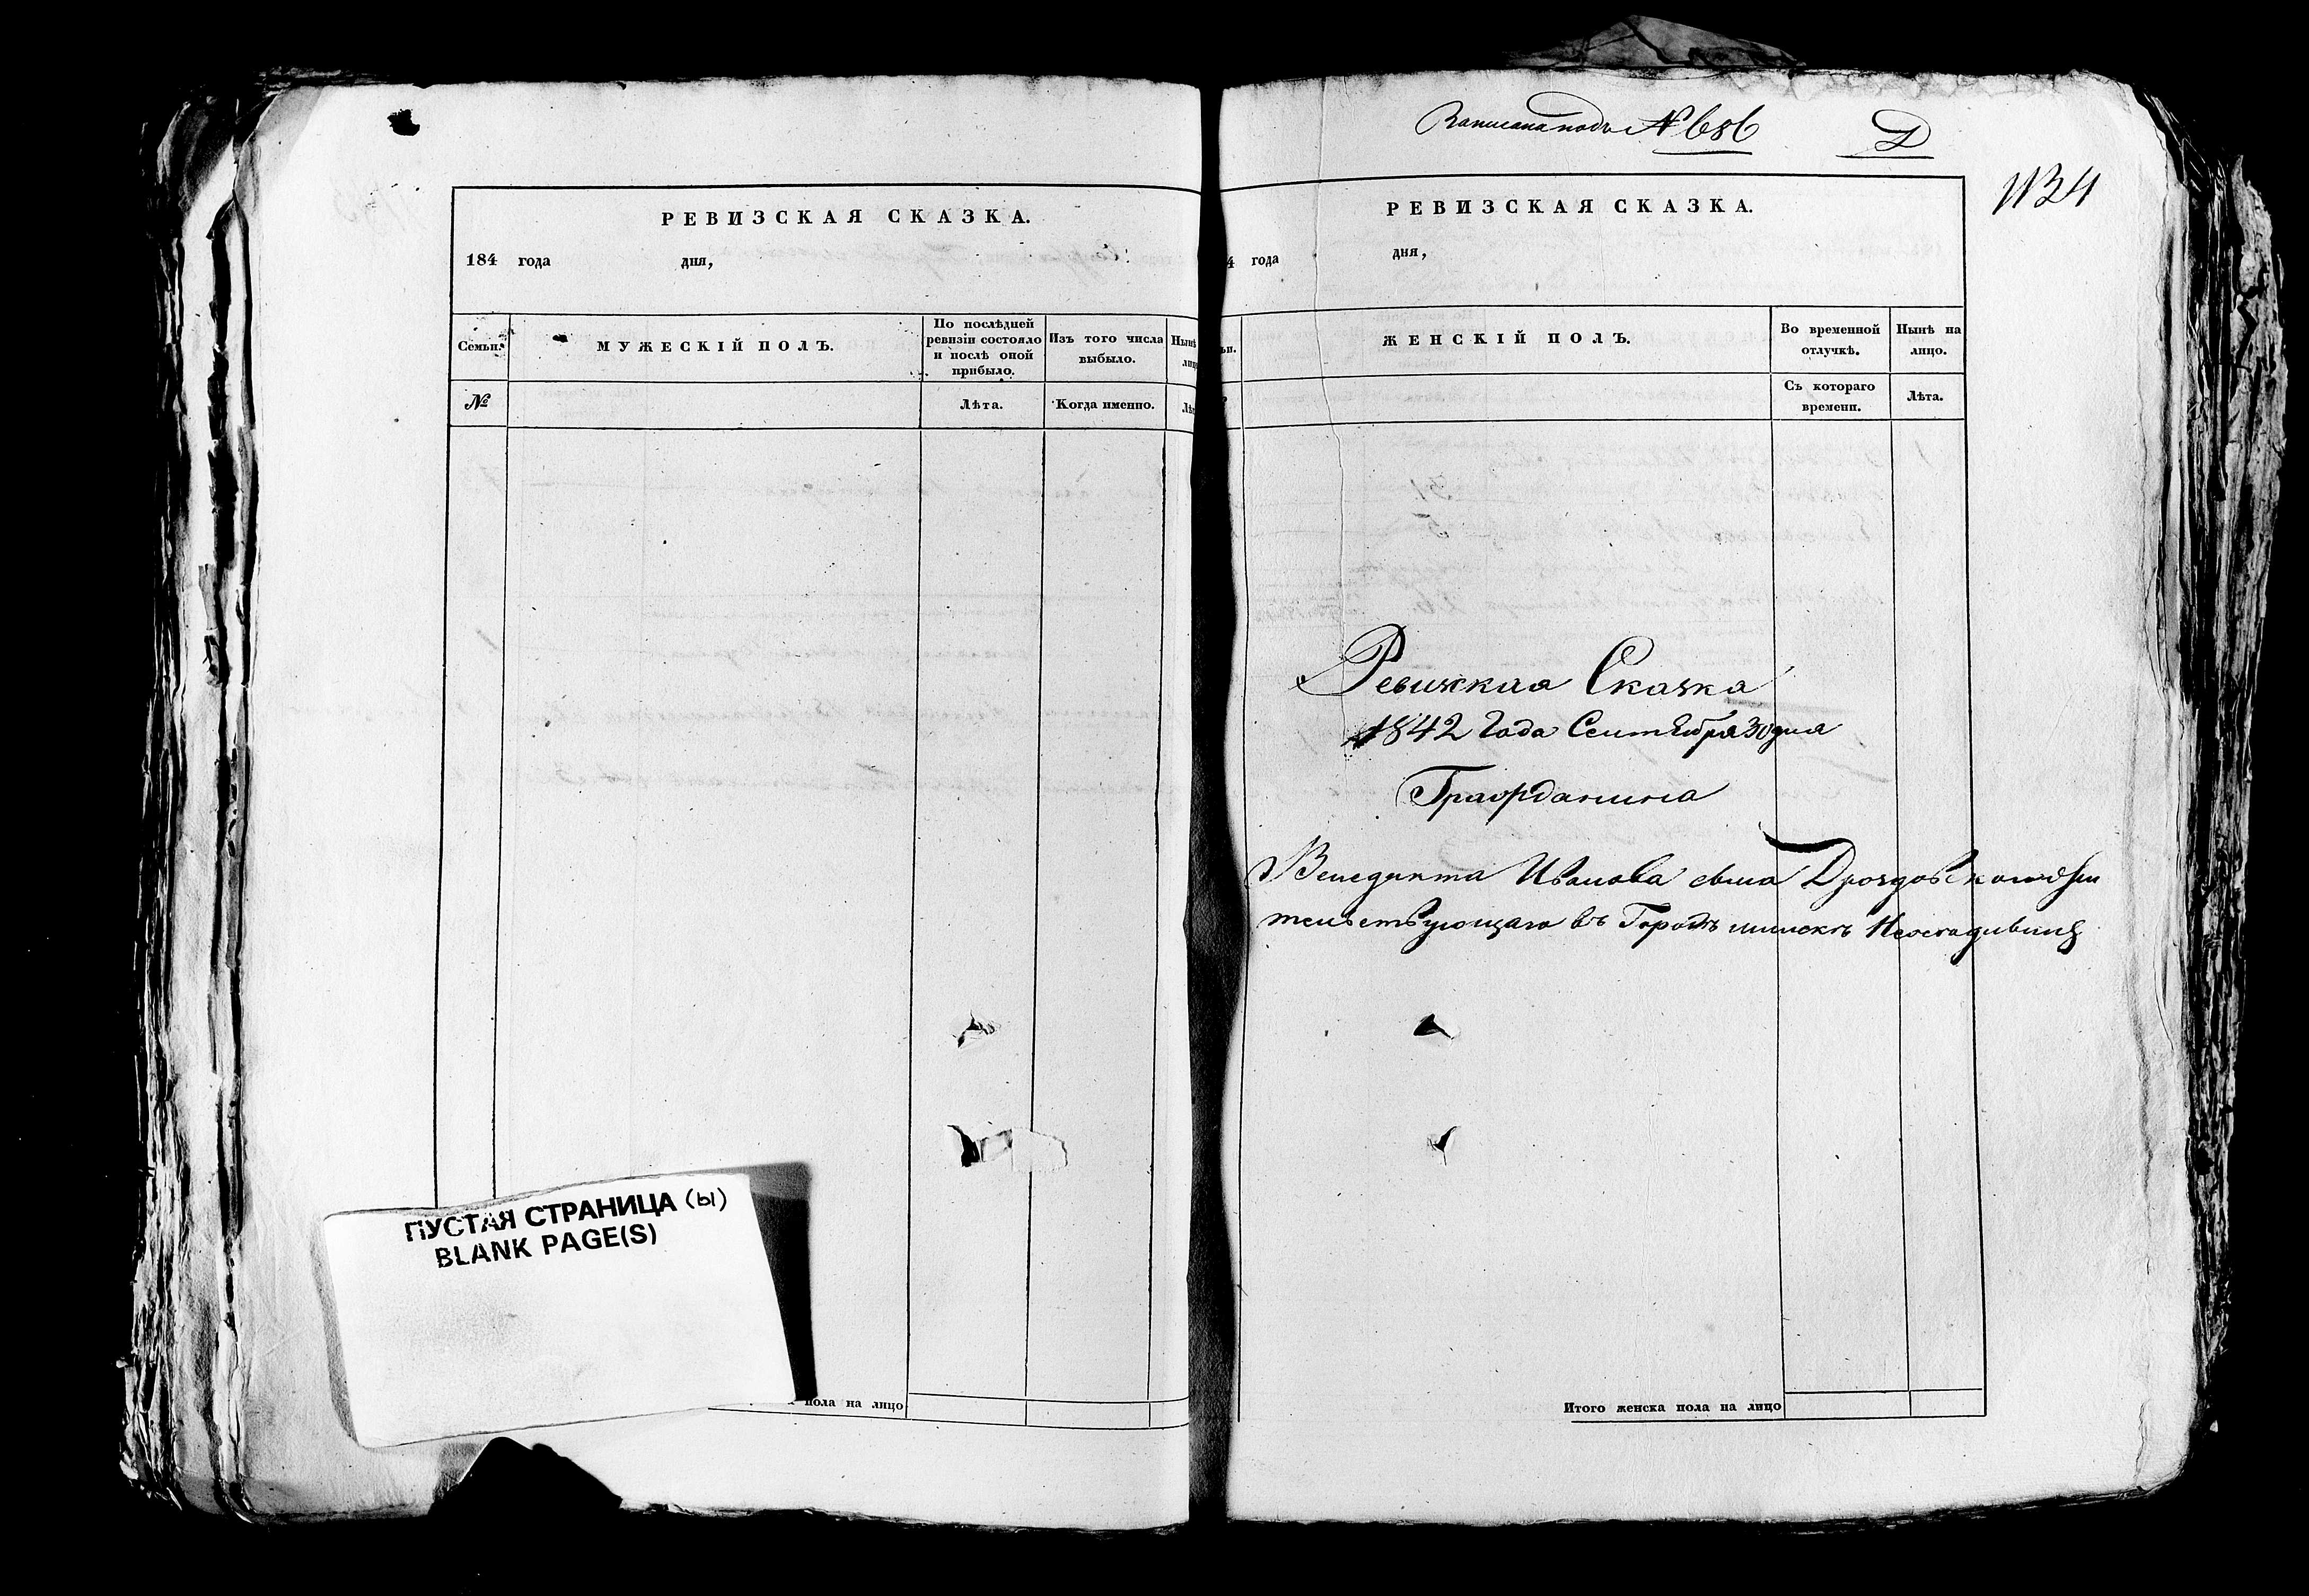 РЕВИЗСКАЯ СКАЗКА.
184 года дня,
Семьи.
МУЖЕСКІЙ ПОЛЪ.
По послѣдней ревизіи состояло и послѣ оной прибыло.
Изъ того числа выбыло.
Нынѣ
№
Лѣта.
Когда именно.
ПУСТАЯ СТРАНИЦА (ы)
BLANK PAGE(S)
пола на лицо
Записана подъ № 686
Д
1134
РЕВИЗСКАЯ СКАЗКА.
4 года дня,
ЖЕНСКІЙ ПОЛЪ.
Во временной отлучкѣ.
Нынѣ на лицо.
Съ котораго времени.
Лѣта.
Ревижкая Сказка
1842 Года Сентября 30 дня
Гражданина
Венедикта Иванова сына Дроздовскаго жи
тельствующаго въ Городѣ минскѣ
Итого женска пола на лицо